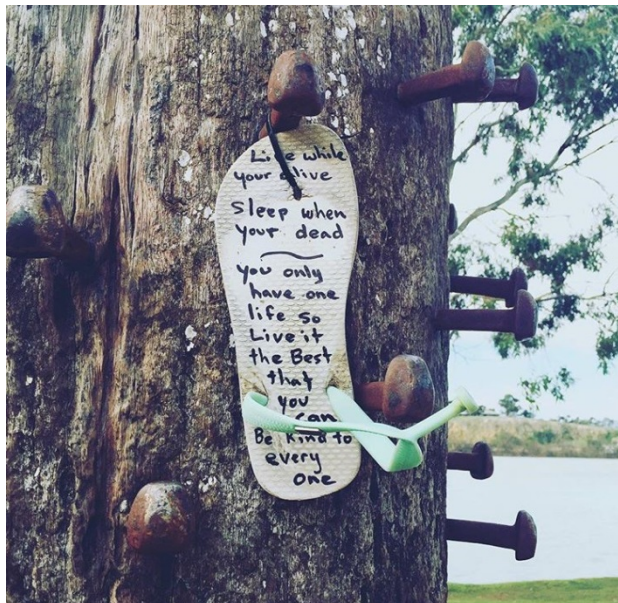 Live while
your alive
Sleep when
your dead
you only
have one
life so
Live it
the Best
that
you
can
Be Kind to
every
one